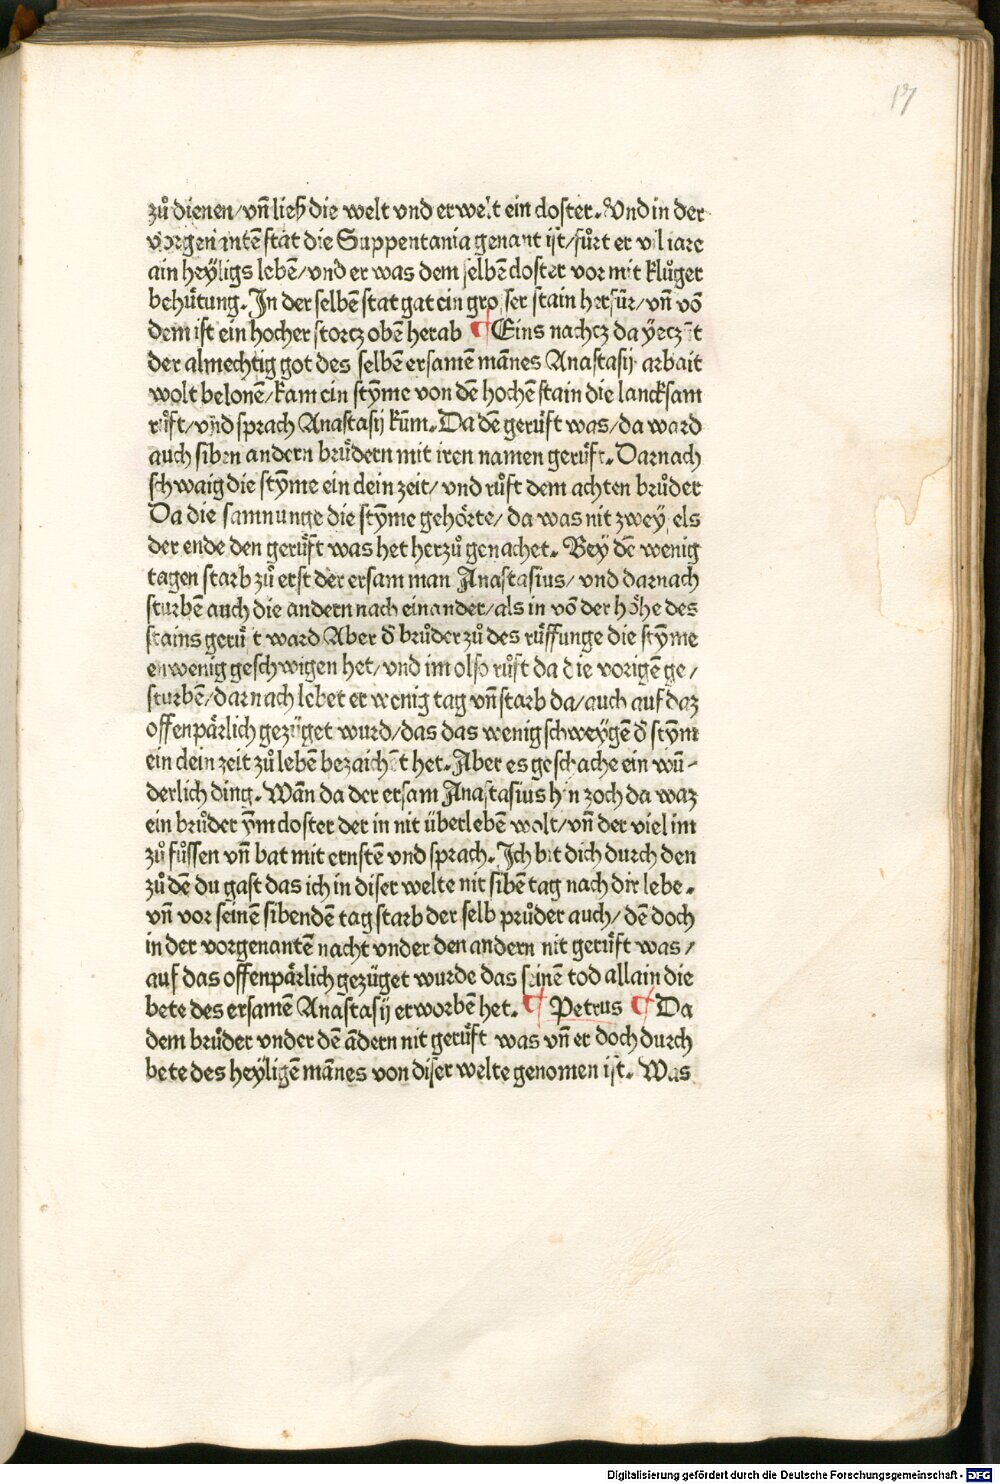 17
zů dienen/vn̄ ließ die welt vnd erwelt ein closter. Vnd in der
vorgenantē stat die Suppentania genant ist/fůrt er vil iare
ain heyligs leben̄/vnd er was dem selben̄ closter vor mit klůger
behůtung. In der selben̄ stat gat ein grosser stain herfür/vn̄ vō
dem ist ein hocher storcz oben̄ herab ¶ Eins nachcz da yeczēt
der almechtig got des selben̄ ersamē mānes Anastasij arbait
wolt belonen̄/kam ein stȳme von dē hochen̄ stain die lancksam
růft/vnd sprach Anastasij kum̄. Da dē gerůft was/da ward
auch siben andern brůdern mit iren namen gerůft. Darnach
schwaig die stȳme ein clein zeit/vnd růft dem achten brůder
Da die samnunge die stȳme gehörte/da was nit zweyfels
der ende den gerůft was het herzů genachet. Bey dē wenig
tagen starb zů erst der ersam man Anastasius/vnd darnach
sturben̄ auch die andern nach einander/als in vō der höhe des
stains gerůft ward Aber d̄ brůder zů des růffunge die stȳme
ein wenig geschwigen het/vnd im also růft da die vorigē ge/
sturben̄/darnach lebet er wenig tag vn̄ starb da/auch auf daz
offenpårlich gezüget wurd/das das wenig schweygē d̄ stȳm
ein clein zeit zů leben̄ bezaichēt het. Aber es geschache ein wū-
derlich ding. Wān da der ersam Anastasius hin zoch da waz
ein brůder ȳm closter der in nit überleben̄ wolt/vn̄ der viel im
zů fůssen vn̄ bat mit ernstē vnd sprach. Ich bit dich durch den
zů dē du gast das ich in diser welte nit siben̄ tag nach dir lebe.
vn̄ vor seinē sibendē tag starb der selb průder auch/dē doch
in der vorgenantē nacht vnder den andern nit gerůft was/
auf das offenpårlich gezüget wurde das seinē tod allain die
bete des ersamē Anastasij erworben̄ het. ¶ Petrus ¶ Da
dem brůder vnder dē ādern nit gerůft was vn̄ er doch durch
bete des heyligē mānes von diser welte genomen ist. Was
Digitalisierung gefördert durch die Deutsche Forschungsgemeinschaft - DFG